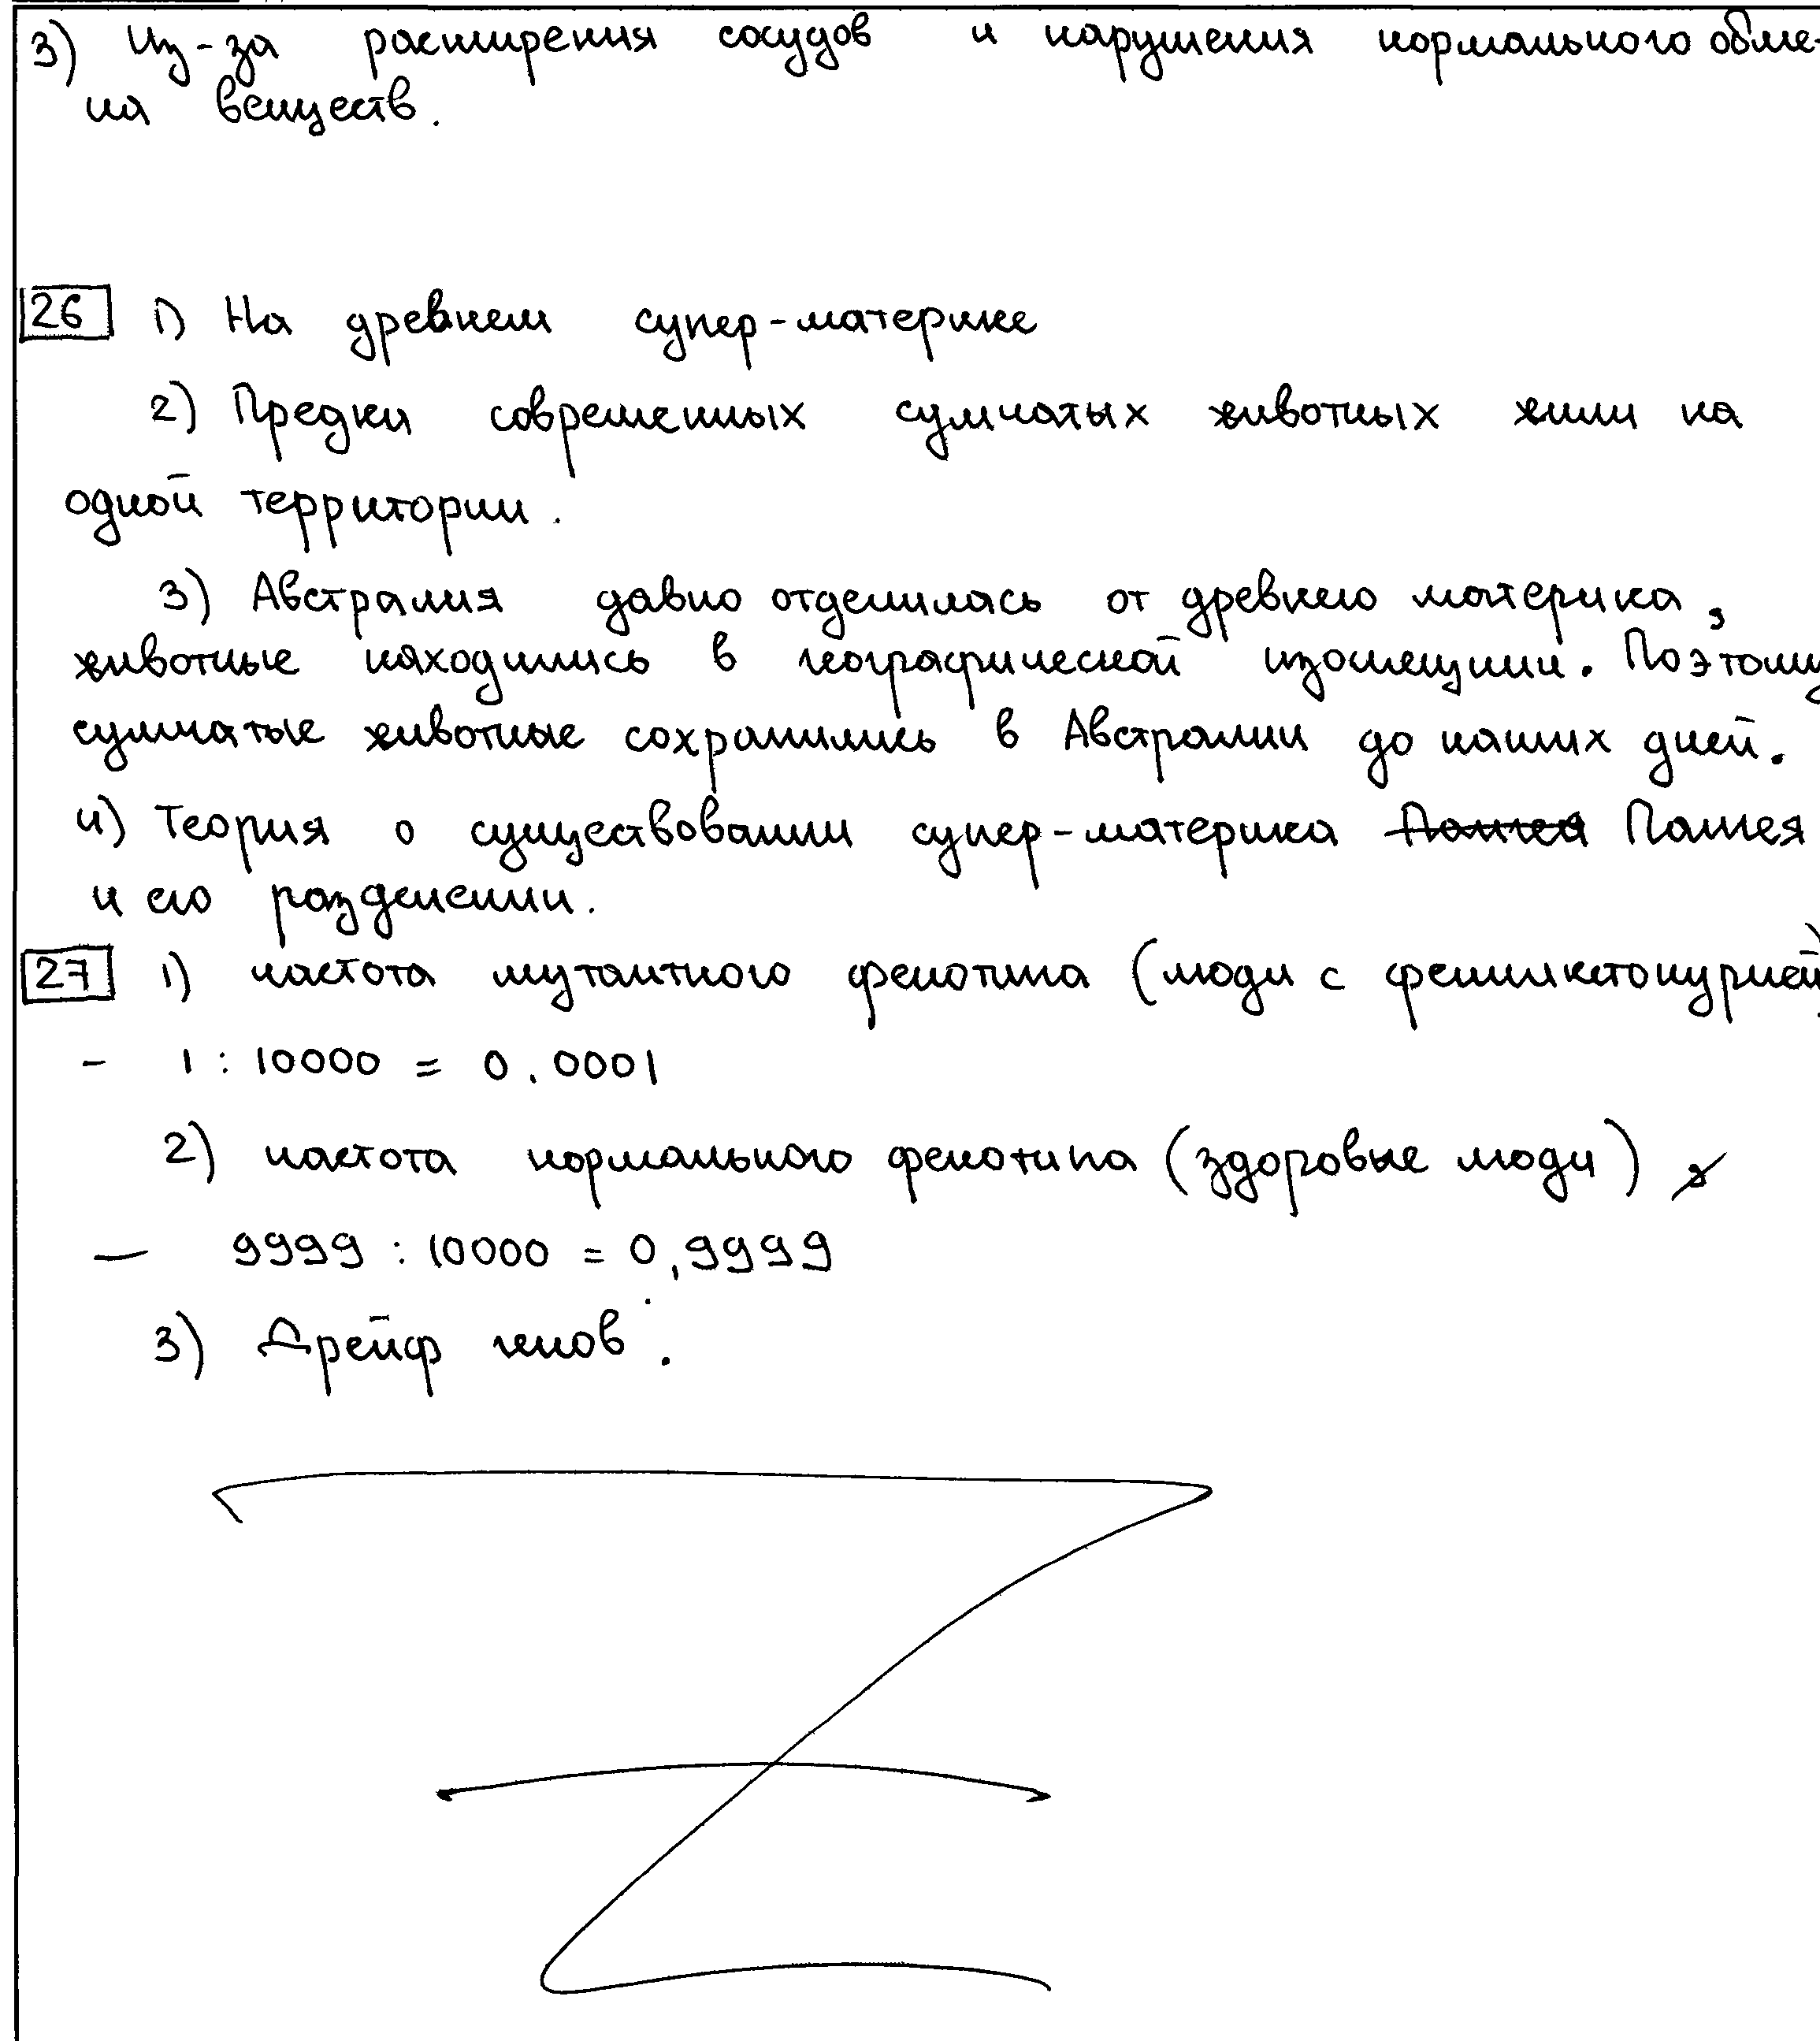 3) Из-за расширения сосудов и нарушения нормального обме-
на веществ.
26 1) На древнем супер-материке
2) Предки современных сумчатых животных жили на
одной территории.
3) Австралия давно отделилась от древнего материка,
животные находились в географической изоляции. Поэтому
сумчатые животные сохранились в Австралии до наших дней.
4) Теория о существовании супер-материка Пангея
и его разделении.
27 1) частота мутантного фенотипа (люди с фенилкетонурией)
- 1 : 10000 = 0.0001
2) частота нормального фенотипа (здоровые люди)
— 9999 : 10000 = 0,9999
3) Дрейф генов.